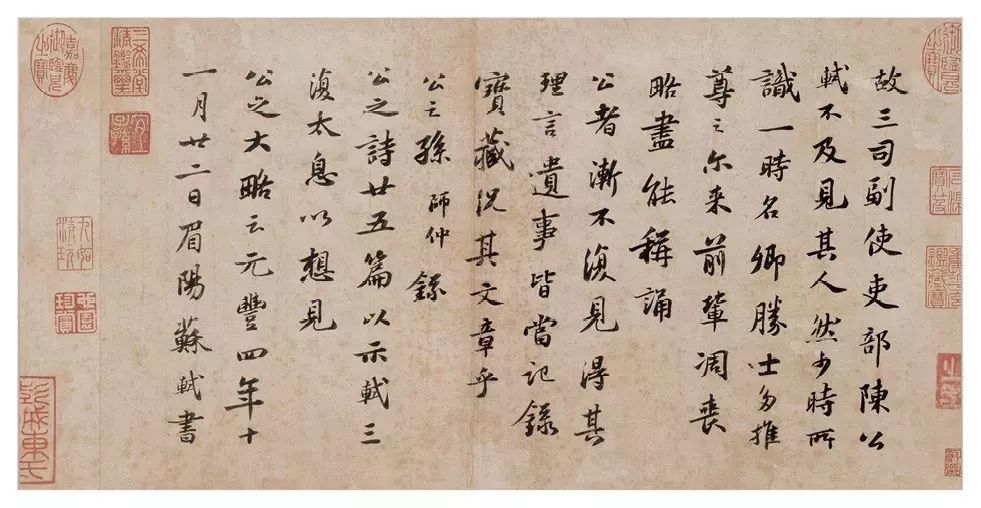 故三司副使吏部陳公
軾不及見其人然少時所
識一時名卿勝士多推
尊之尓来前輩凋喪
略盡能稱誦
公者漸不復見得其
理言遺事皆當記錄
寶藏況其文章乎
公之孫師仲錄
公之詩廿五篇以示軾三
復太息以想見
公之大略云元豐四年十
一月廿二日眉陽蘇軾書
嘉慶御覽之寶
三希堂精鑑璽
宜子孫